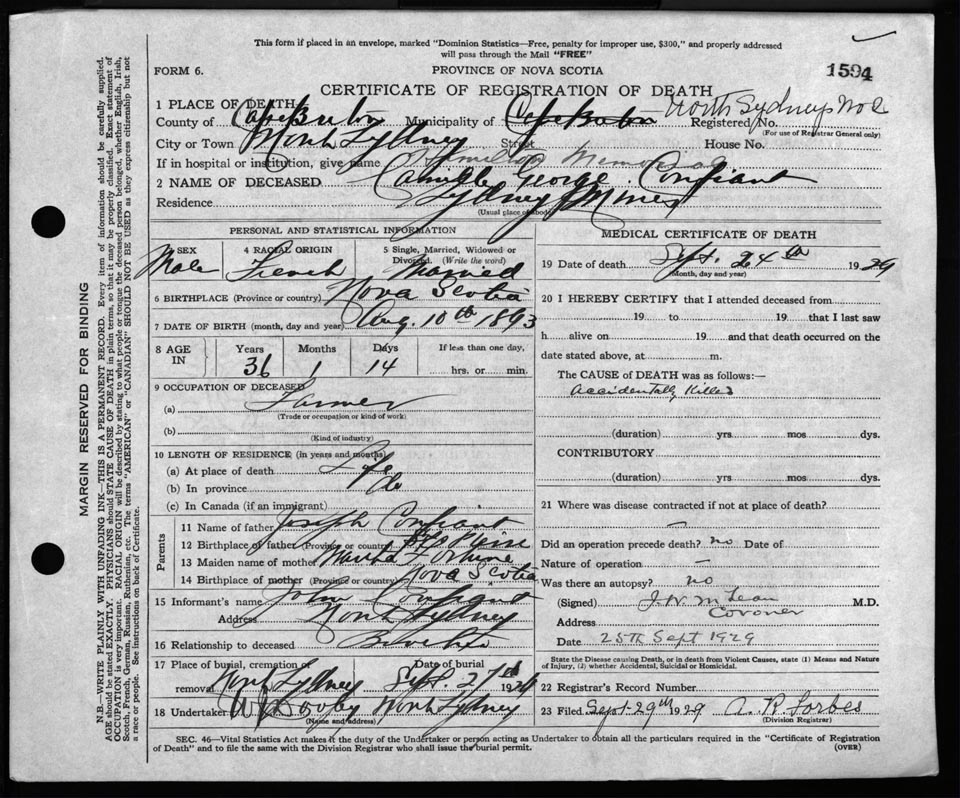 This form if placed in an envelope, marked "Dominion Statistics—Free, penalty for improper use, $300," and properly addressed
will pass through the Mail "FREE"
FORM 6.
PROVINCE OF NOVA SCOTIA
1594
CERTIFICATE OF REGISTRATION OF DEATH
1 PLACE OF DEATH
North Sydney No 2
County of Cape Breton Municipality of Cape Breton Registered No.
(For use of Registrar General only)
City or Town North Sydney Street House No.
If in hospital or institution, give name Hamilton Memorial
2 NAME OF DECEASED Camille George Confiant
Residence Sydney Mines
(Usual place of abode)
PERSONAL AND STATISTICAL INFORMATION
SEX Male
4 RACIAL ORIGIN French
5 Single, Married, Widowed or Divorced. (Write the word) Married
6 BIRTHPLACE (Province or country) Nova Scotia
7 DATE OF BIRTH (month, day and year) Aug. 10th 1893
8 AGE IN Years 36 Months 1 Days 14 If less than one day, hrs. or min.
9 OCCUPATION OF DECEASED
(a) Farmer
(Trade or occupation or kind of work)
(b)
(Kind of industry)
10 LENGTH OF RESIDENCE (in years and months)
(a) At place of death Life
(b) In province do
(c) In Canada (if an immigrant)
Parents
11 Name of father Joseph Confiant
12 Birthplace of father (Province or country) St Pierre
13 Maiden name of mother Martha
14 Birthplace of mother (Province or country) Nova Scotia
15 Informant's name John Confiant
Address North Sydney
16 Relationship to deceased Brother
17 Place of burial, cremation or removal North Sydney Date of burial Sept. 27th 1929
18 Undertaker North Sydney
(Name and address)
MEDICAL CERTIFICATE OF DEATH
19 Date of death Sept. 24th 1929
(Month, day and year)
20 I HEREBY CERTIFY that I attended deceased from
19 to 19 that I last saw
h alive on 19 and that death occurred on the
date stated above, at m.
The CAUSE of DEATH was as follows:—
Accidentally Killed
(duration) yrs mos dys.
CONTRIBUTORY
(duration) yrs mos dys.
21 Where was disease contracted if not at place of death?
—
Did an operation precede death? no Date of
Nature of operation —
Was there an autopsy? no
(Signed) J. W. McLean M.D.
Address Coroner
Date 25th Sept 1929
State the Disease causing Death, or in death from Violent Causes, state (1) Means and Nature
of Injury, (2) whether Accidental, Suicidal or Homicidal.
22 Registrar's Record Number
23 Filed Sept 29th 1929 A. R. Forbes
(Division Registrar)
SEC. 46—Vital Statistics Act makes it the duty of the Undertaker or person acting as Undertaker to obtain all the particulars required in the "Certificate of Registration
of Death" and to file the same with the Division Registrar who shall issue the burial permit.
(OVER)
MARGIN RESERVED FOR BINDING
N.B.—WRITE PLAINLY WITH UNFADING INK—THIS IS A PERMANENT RECORD. Every item of information should be carefully supplied.
AGE should be stated EXACTLY. PHYSICIANS should STATE CAUSE OF DEATH in plain terms, so that it may be properly classified. Exact statement of
OCCUPATION is very important. RACIAL ORIGIN will be described by stating to what people or tongue the deceased person belonged, whether English, Irish,
Scotch, French, German, Russian, Ruthenian, etc. The terms "AMERICAN" or "CANADIAN" SHOULD NOT BE USED as they express citizenship but not
a race or people. See instructions on back of Certificate.